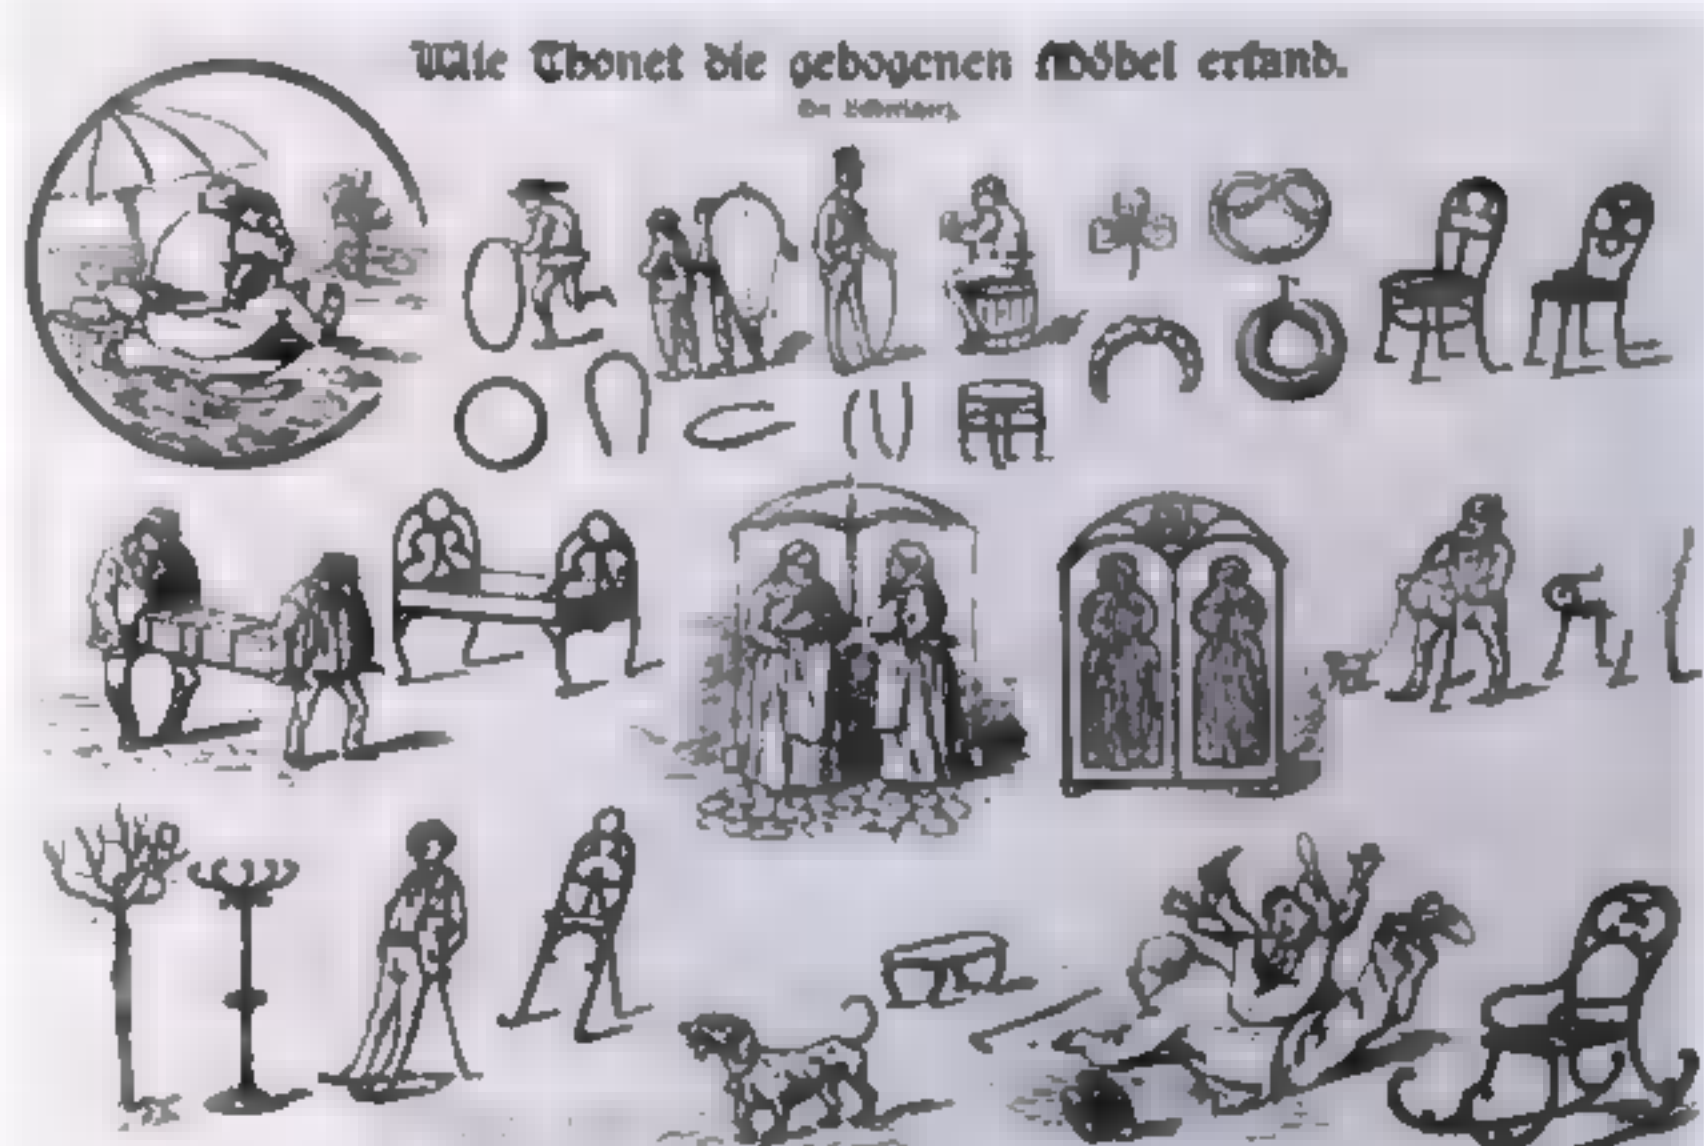 Wie Thonet die gebogenen Möbel erfand.